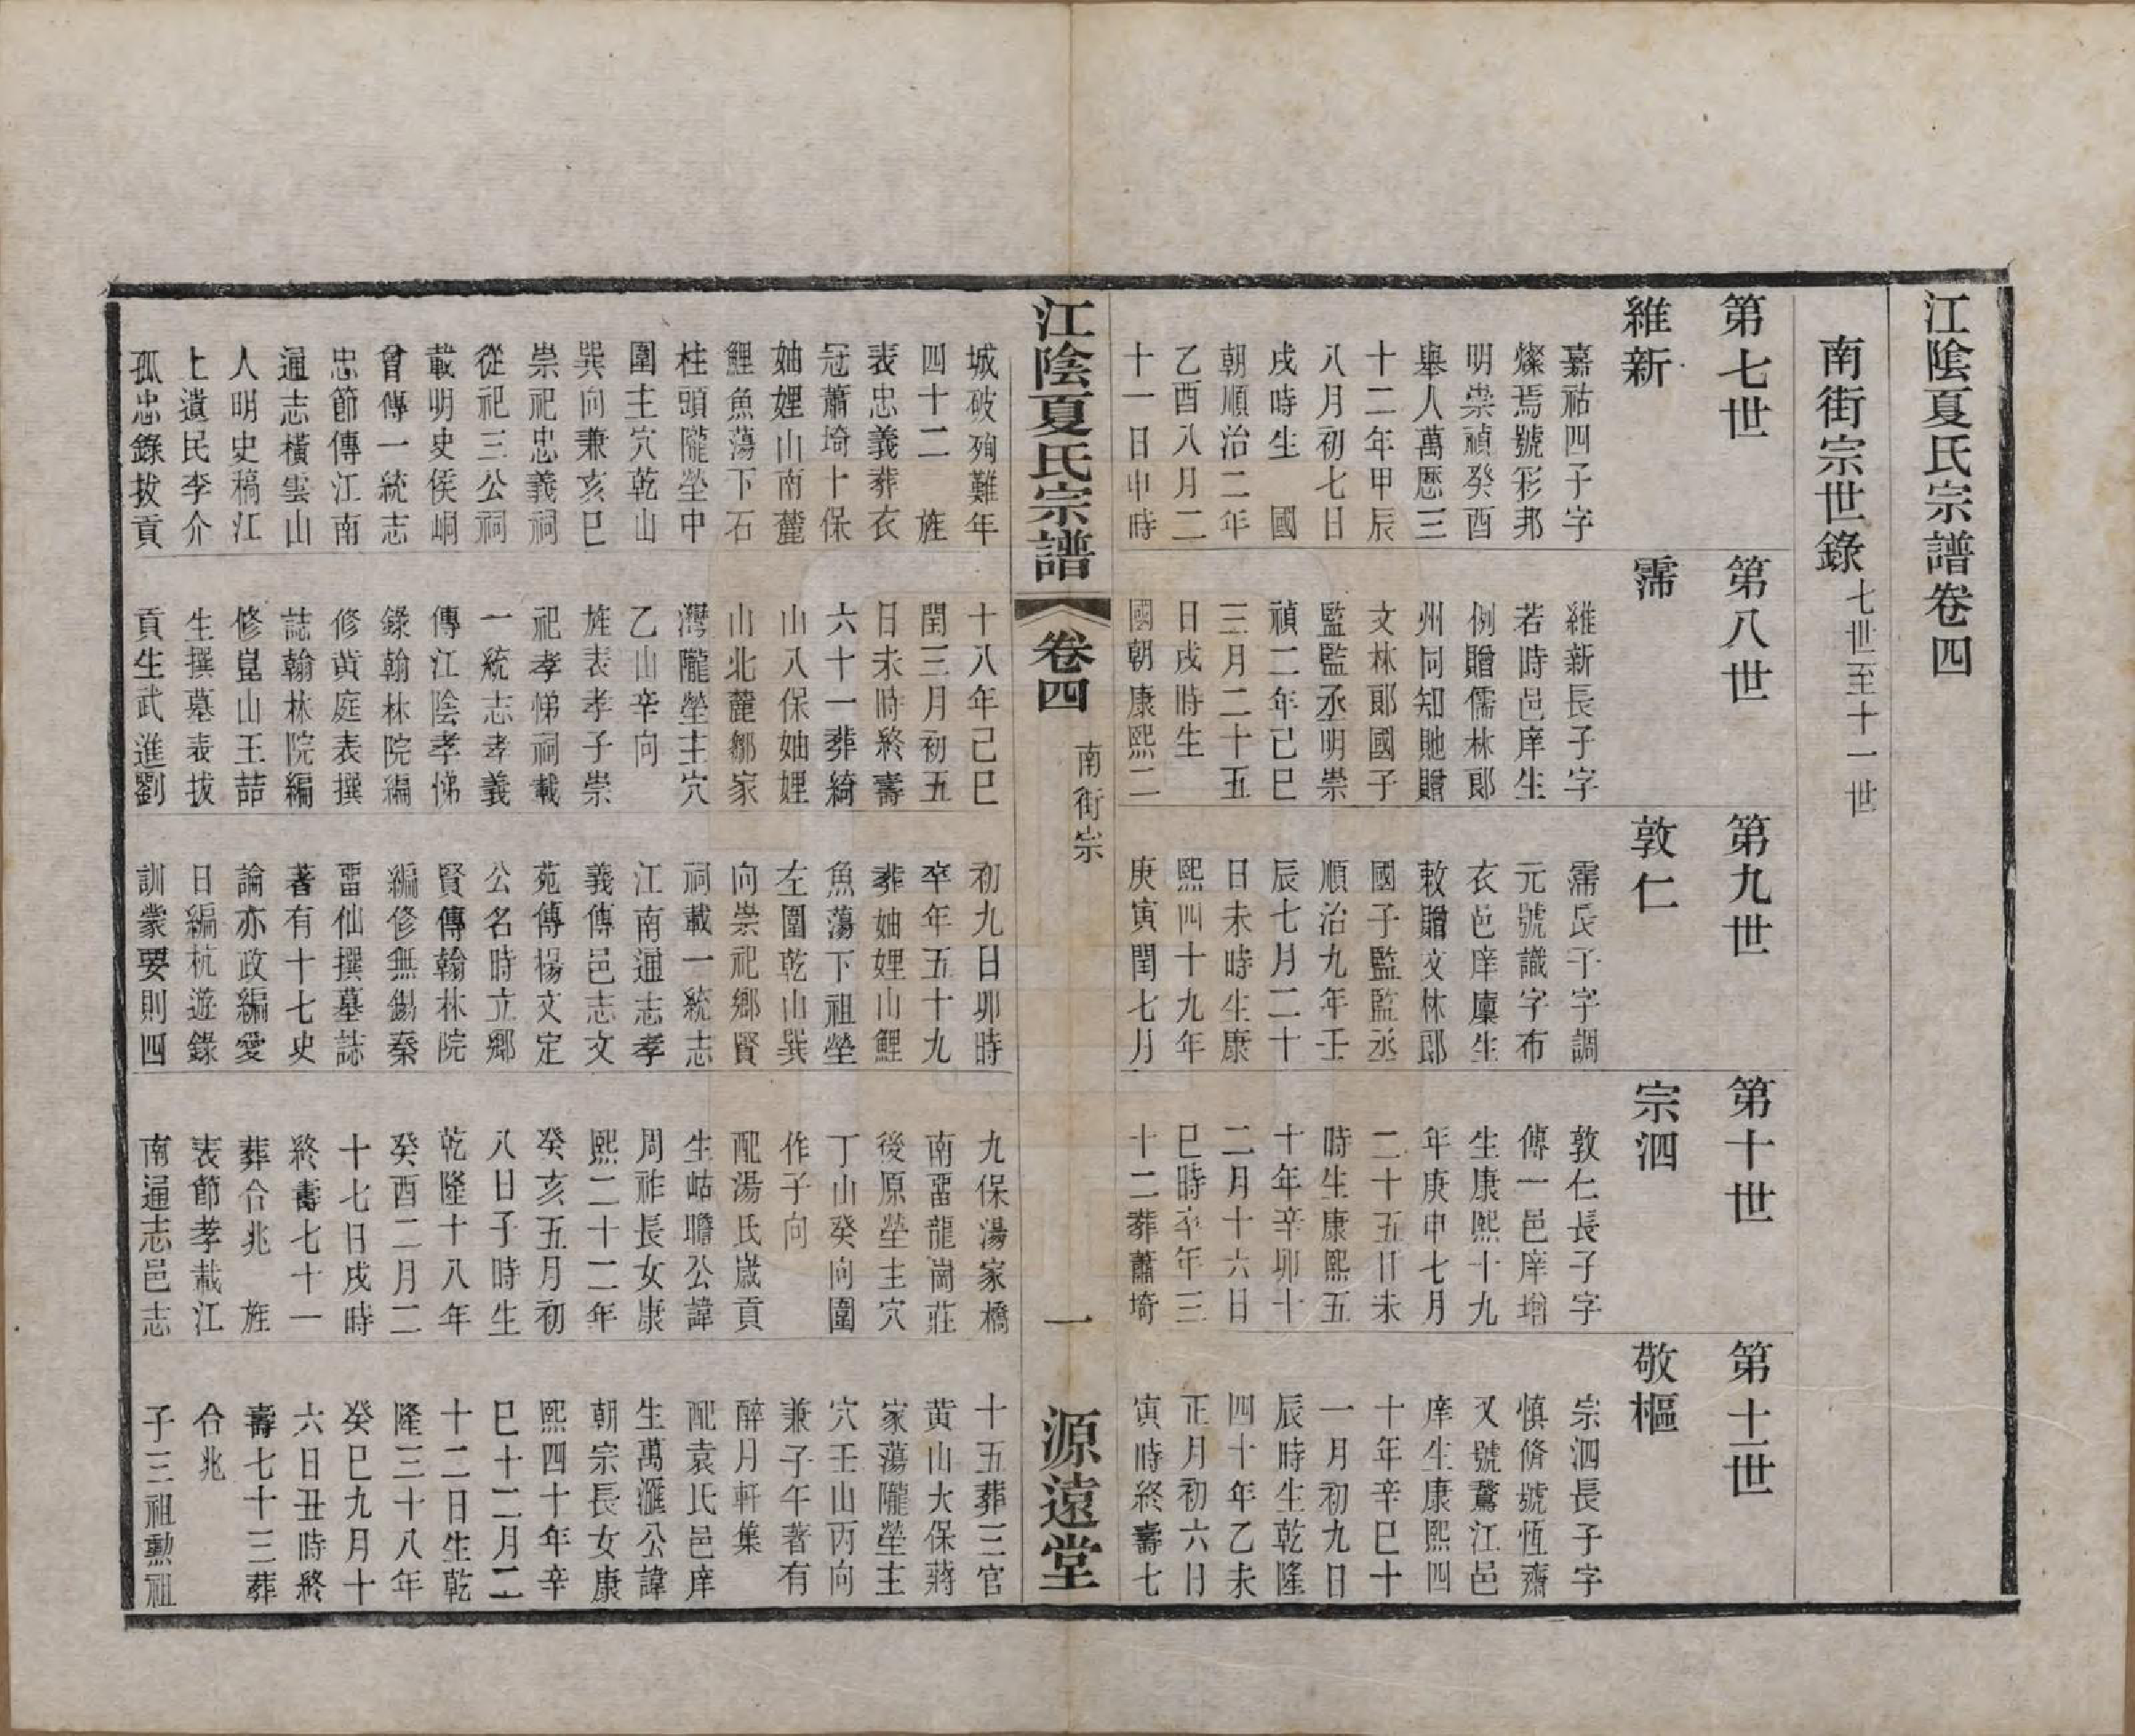 江陰夏氏宗譜卷四
南街宗世錄七世至十一世
第七世
維新
嘉祜四子字
燦焉號彩邦
明崇禎癸酉
舉人萬歷三
十二年甲辰
八月初七日
戌時生　國
朝順治二年
乙酉八月二
十一日申時
城破殉難年
四十二　旌
表忠義葬衣
冠蕭埼十保
妯娌山南麓
鯉魚蕩下石
柱頭隴塋中
圍主穴乾山
巽向兼亥巳
崇祀忠義祠
從祀三公祠
載明史侯峒
曾傳一統志
忠節傳江南
通志橫雲山
人明史稿江
上遺民李介
孤忠錄拔貢
第八世
霈
維新長子字
若時邑庠生
例贈儒林郎
州同知貤贈
文林郎國子
監監丞明崇
禎二年己巳
三月二十五
日戌時生
國朝康熙二
十八年己巳
閏三月初五
日未時終壽
六十一葬綺
山八保妯娌
山北麓鄒家
灣隴塋主穴
乙山辛向
旌表孝子崇
祀孝悌祠載
一統志孝義
傳江陰孝悌
錄翰林院編
修黄庭表撰
誌翰林院編
修崑山王喆
生撰墓表拔
貢生武進劉
第九世
敦仁
霈長子字調
元號識字布
衣邑庠廩生
敕贈文林郎
國子監監丞
順治九年壬
辰七月二十
日未時生康
熙四十九年
庚寅閏七月
初九日卯時
卒年五十九
葬妯娌山鯉
魚蕩下祖塋
左圍乾山巽
向崇祀鄉賢
祠載一統志
江南通志孝
義傳邑志文
苑傳楊文定
公名時立鄉
賢傳翰林院
編修無錫秦
霤仙撰墓誌
著有十七史
論亦政編愛
日編杭遊錄
訓蒙要則四
第十世
宗泗
敦仁長子字
傳一邑庠增
生康熙十九
年庚申七月
二十五日未
時生康熙五
十年辛卯十
二月十六日
巳時卒年三
十二葬蕭埼
九保湯家橋
南霤龍崗莊
後原塋主穴
丁山癸向圍
作子向
配湯氏歲貢
生岵瞻公諱
周祚長女康
熙二十二年
癸亥五月初
八日子時生
乾隆十八年
癸酉二月二
十七日戌時
終壽七十一
葬合兆　旌
表節孝載江
南通志邑志
第十一世
敬樞
宗泗長子字
慎脩號恆齋
又號鶩江邑
庠生康熙四
十年辛巳十
一月初九日
辰時生乾隆
四十年乙未
正月初六日
寅時終壽七
十五葬三官
黄山大保蔣
家蕩隴塋主
穴壬山丙向
兼子午著有
醉月軒集
配袁氏邑庠
生萬滙公諱
朝宗長女康
熙四十年辛
巳十二月二
十二日生乾
隆三十八年
癸巳九月十
六日丑時終
壽七十三葬
合兆
子三祖勲祖
江陰夏氏宗譜
卷四
南街宗
一
源遠堂